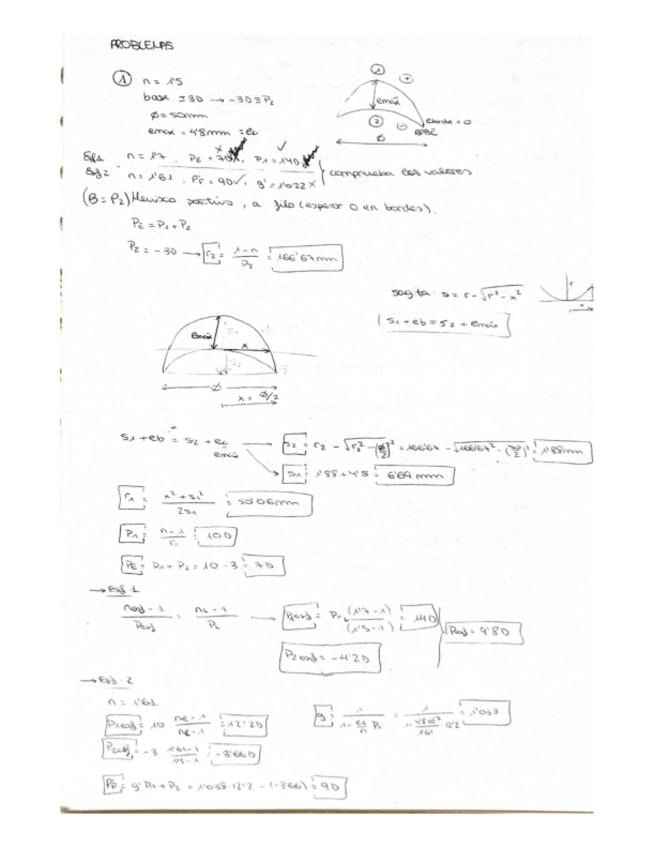 PROBLEMAS
① n = 1'5
base ≡ 3D → -3D ≡ P2
Ø = 50mm
emax = 4'8mm = ec
① +
emax
② - eborde = 0
BASE
Ø
Esf1. n = 1'7 , PE = 70 x , P1 = 14D ✓
Esf2 n = 1'61 , PE = 9D ✓, g = 1'022 x } comprueba los valores
(B = P2) Menisco positivo, a filo (espesor 0 en bordes).
PE = P1 + P2
P2 = -3D → r2 = (1-n)/P2 = 166'67mm
sagita: s = r - √(r² - x²)
s1 + eb = s2 + emax
emax
x
Ø
x = Ø/2
s1 + eb = s2 + ec → s2 = r2 - √(r2² - (Ø/2)²) = 166'67 - √(166'67² - (50/2)²) = 1'88mm
emax
s1 = 1'88 + 4'8 = 6'69 mm
r1 = (x² + s1²)/(2s1) = 50'06mm
P1 = (n-1)/r1 = 10D
PE = P1 + P2 = 10 - 3 = 7D
→ Esf 1
(nesf - 1)/Pesf = (nc - 1)/Pc → P1esf = P1 (1'7 - 1)/(1'5 - 1) = 14D
P2esf = -4'2D
Pesf = 9'8D
→ Esf. 2
n = 1'61
P1esf = 10 (ne-1)/(nc-1) = 12'2D
g = 1/(1 - ec/n P1) = 1/(1 - 4'8·10⁻³/1'61 · 12'2) = 1'038
P2esf = -3 (1'61-1)/(1'5-1) = -3'66D
PE = g·P1 + P2 = 1'038·12'2 - (-3'66) = 9D